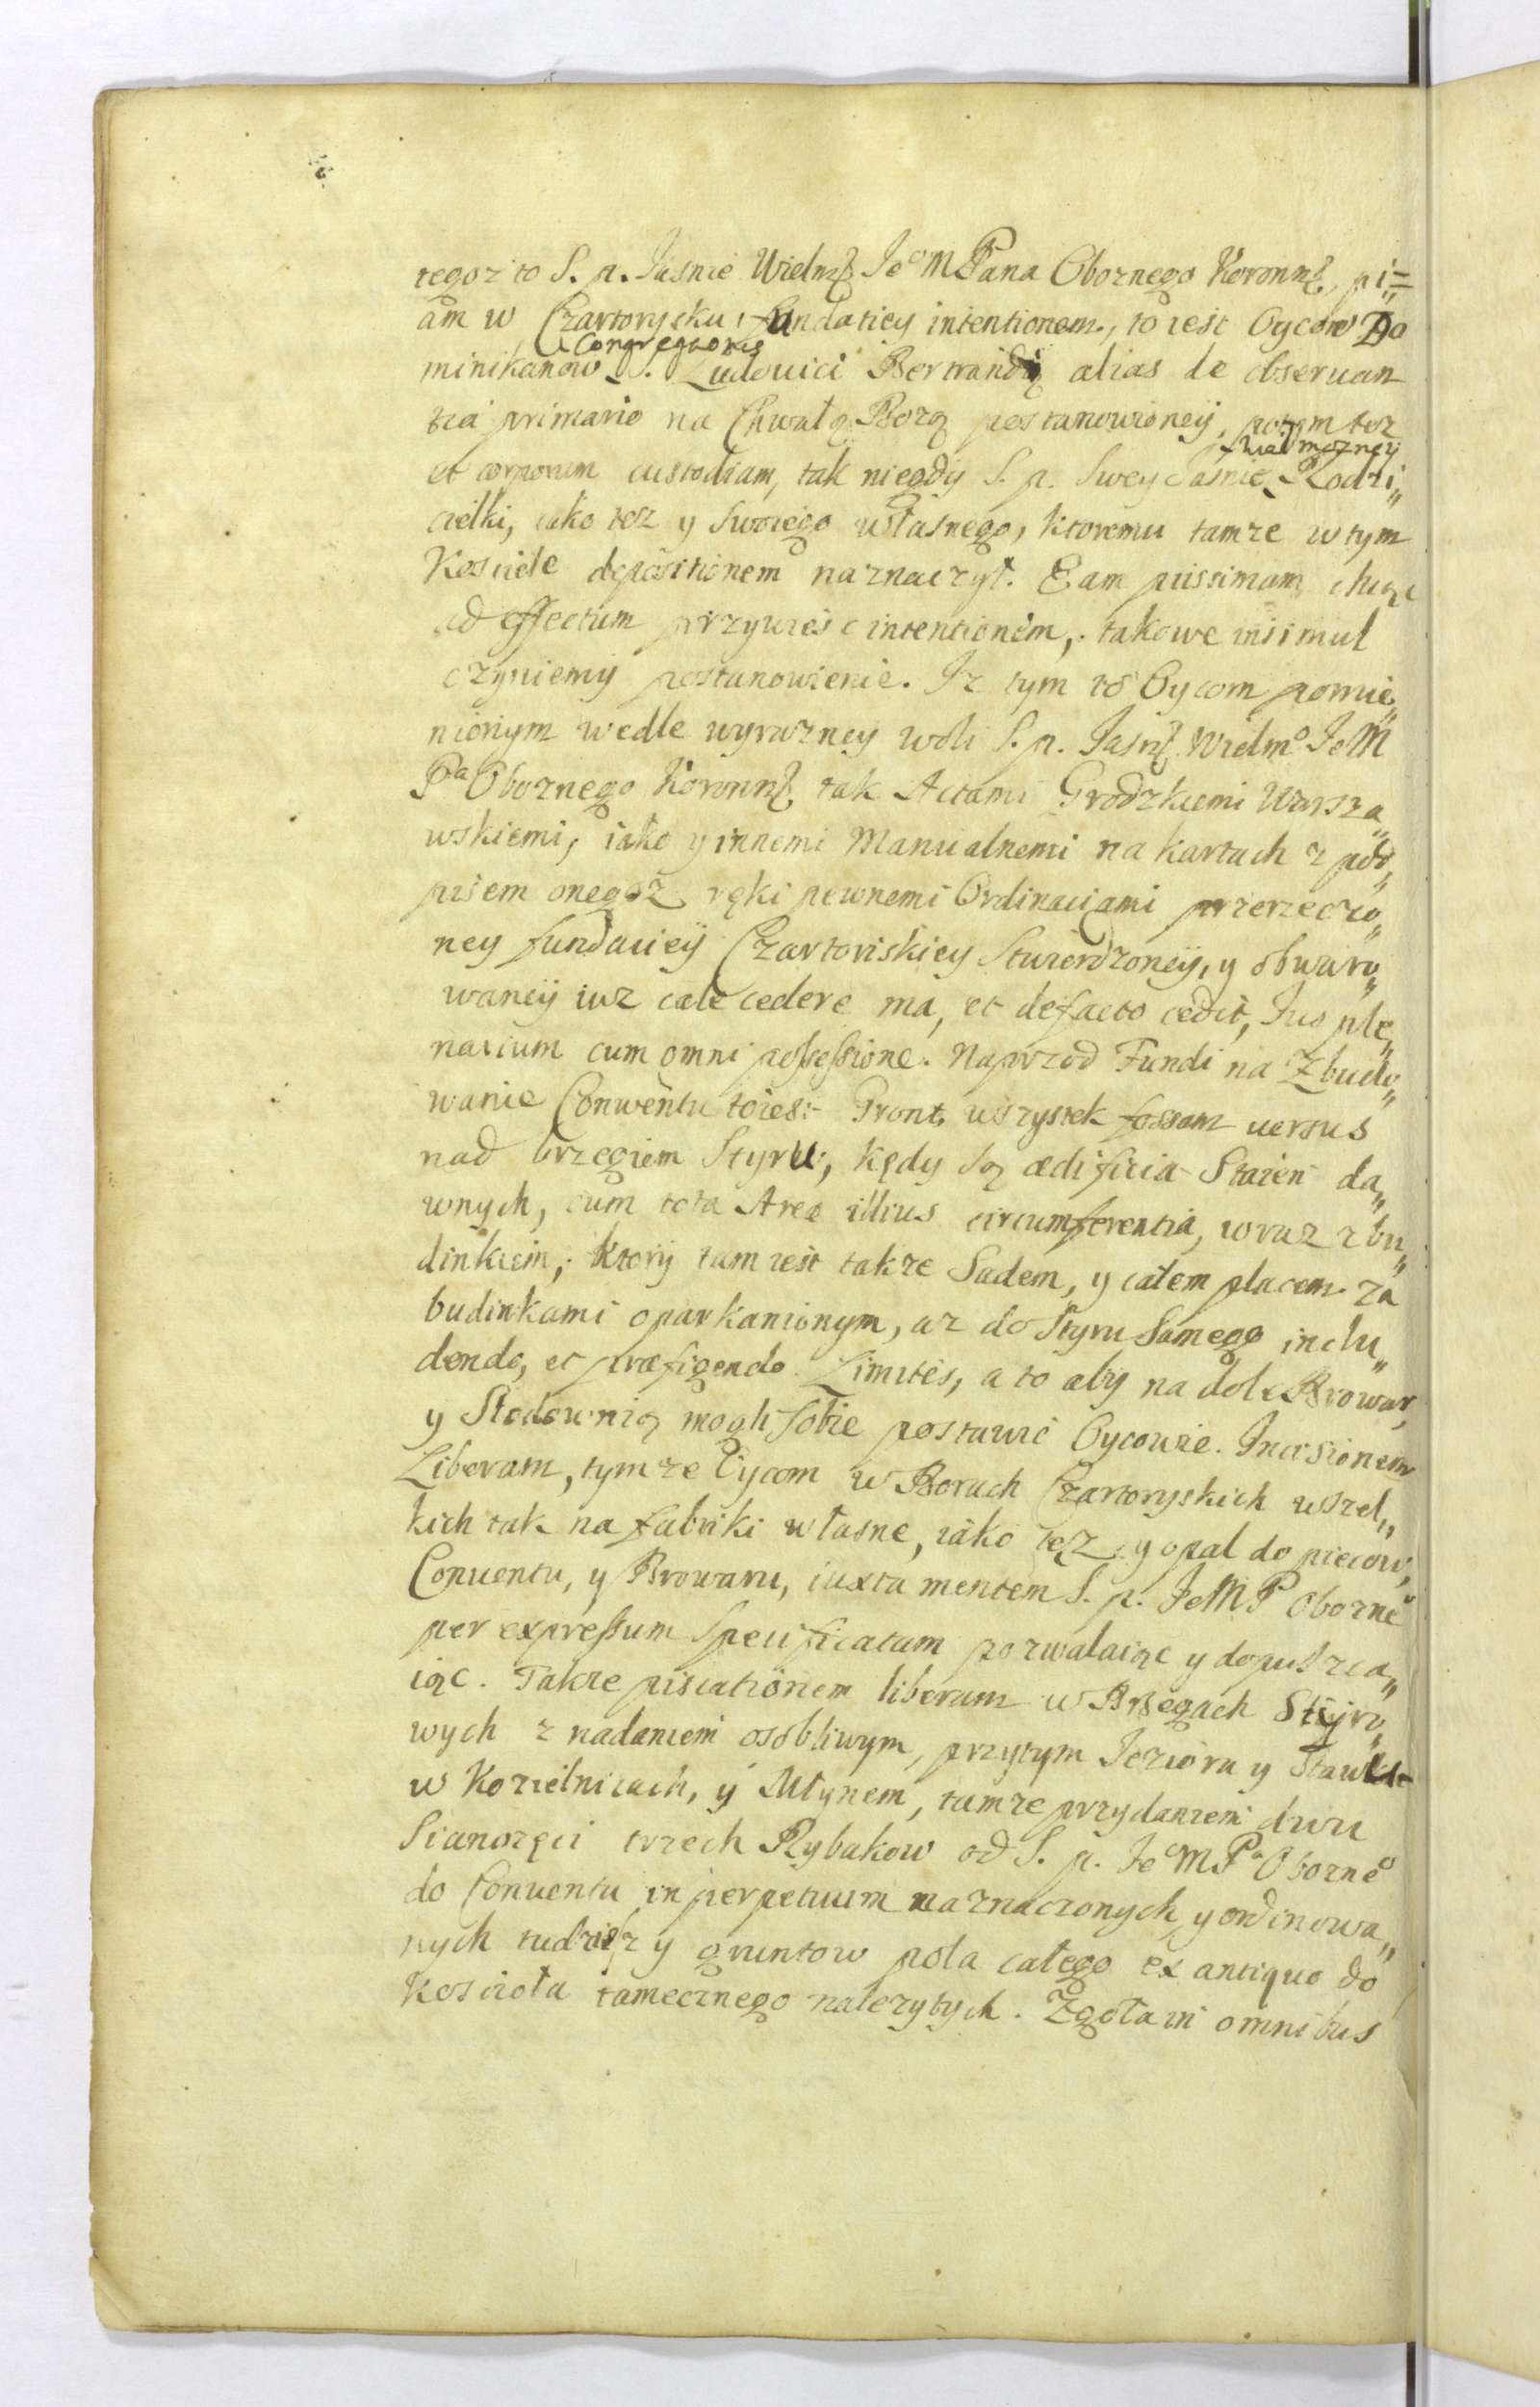 tegoz to S. p. Jasnie Wielmꝫ Jeo M Pana Oboznego Koronnꝫ, pi=
am w Czartorysku, fundatiey intentionem, to iest Oycow Do
Congregaonis
minikanow S. Ludouici Bertrandi alias de obseruan
tia primario na Chwałę Bozą postanowioneÿ, potym tez
Wielmozney
et corporum custodiam, tak niegdy S. p. Swey Jasnie Rodzi„
cielki, iako tez y Swoiego własnego, ktoremu tamze w tym
Kosciele depositionem naznaczył. Eam piissimam chcąc
ad effectum przywiesc intentionem, takowe insimul
czyniemy postanowienie. Iz tym to Oycom pomie„
nionym wedle wyrazney woli S. p. Jasnꝫ Wielmo JeM
Pa Oboznego Koronnꝫ tak Actami Grodzkiemi Warsza„
wskiemi, iako y innemi Manualnemi na kartach z pod„
pisem onegoz ręki pewnemi Ordinaciami przerzeczo„
ney fundacieÿ Czartoriskiey Stwierdzoneÿ, y obwaro„
waneÿ iuz cale cedere ma, et defacto cedit, Ius ple„
narium cum omni possessione. Naprzod Fundi na Zbudo„
wanie Conwentu toiest Gront wszystek fossam uersus
nad brzegiem Styru, kędy są ædificia Staien da„
wnych, cum tota Areæ illius circumferentia, wraz z bu„
dinkiem, ktorÿ tam iest takze Sadem, y całem placem za
budinkami oparkanionym, az do Styru Samego inclu„
dendo, et præfigendo Limites, a to aby na dole Browar,
y Słodownią mogli sobie postawic Oycowie. Incisionem
Liberam, tymze Oycom w Borach Czartoryskich wszel„
kich tak na fabriki własne, iako tez y opał do piecow,
Conuentu, y Browaru, iuxta mentem S. p. JeM P Obozneo
per expressum Specificatam pozwalaiąc y dopuszcza„
iąc. Takze piscationem liberam w Brzegach Styro„
wych z nadaniem osobliwym, przytym Jeziora y Stawku
w Kozielnicach, y Młynem, tamze przydaniem dwu
Sianozęci trzech Rybakow od S. p. Jeo M Pa Obozneo
do Conuentu in perpetuum naznaczonych y ordinowa„
nych tudziesz y gruntow pola całego ex antiquo do
Koscioła tamecznego nalezytych. Zgoła in omnibus